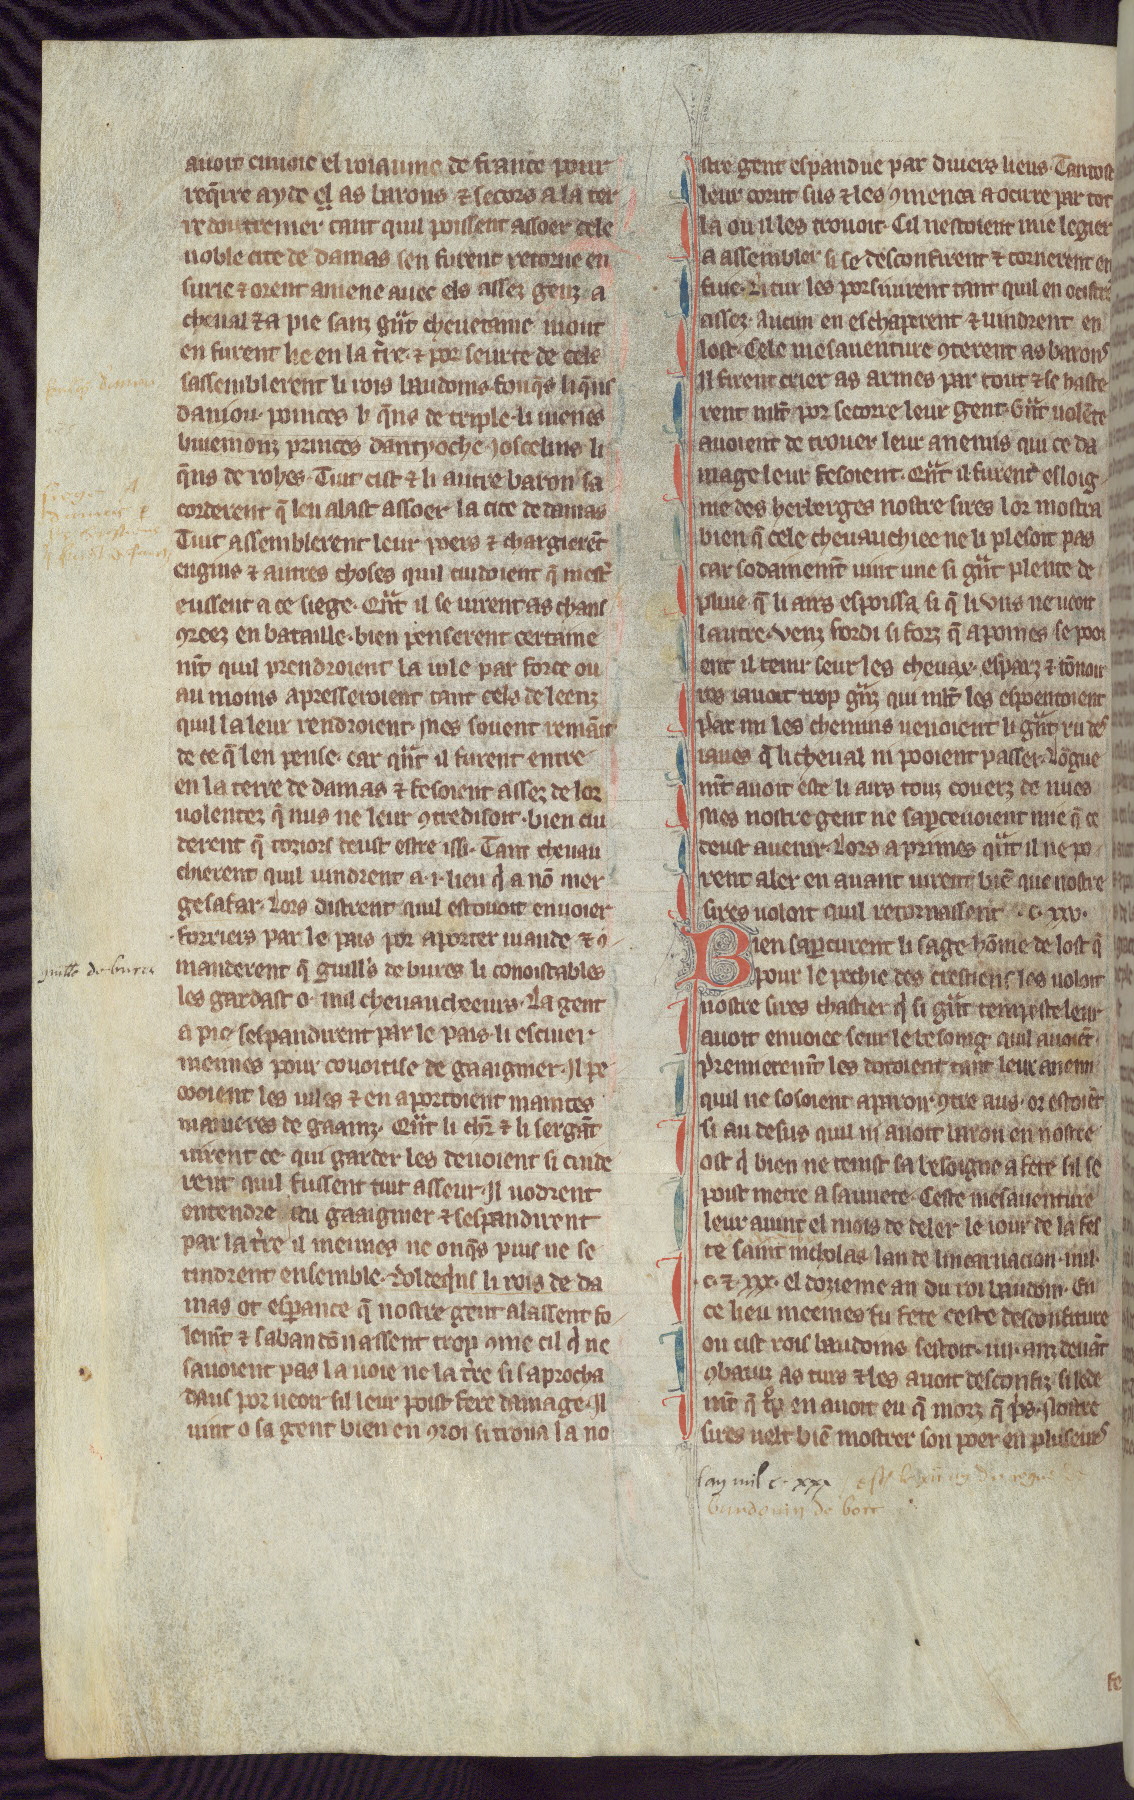 avoit envoie el roiaume de france pour
req̃rre ayde el as barons ⁊ secors a la ter
re doutremer tant quil poissent assoer cele
noble cite de damas sen furent retorne en
surie ⁊ orent amene avec els assez genz a
cheval ⁊ a pie sanz gñt chevetaine mout
en furent lie en la t̃re ⁊ por seurte de cels
sassemblerent li rois baudoins fouq̃s li q̃ns
daniou poinces li q̃ns de triple li menes
buiemonz princes dantyoche Josselins li
q̃ns de rohes. Tuit cist ⁊ li autre baron sa
corderent q̃ len alast assoer la cite de damas
Tuit assemblerent leur poers ⁊ chargierẽt
engins ⁊ autres choses quil cuidoient q̃ mest̃
eussent a ce siege. Qñt il se virent as chans
ꝯreez en bataille. bien penserent certaine
mẽt quil prendroient la vile par force ou
au moins apresseroient tant cels de leenz
quil la leur rendroient. Mes sovent remãit
de ce q̃ len pense. car qñt il furent entre
en la terre de damas ⁊ fesoient assez de lor
volentez q̃ nus ne leur ꝯtredisoit. bien cui
derent q̃ toziors deust estre issi. Tant chevau
chierent quil vindrent a .i. lieu q̃ a nõ mer
gesafar. Lors distrent quil estovoit envoier
forriers par le pais por aporter viande ⁊ ꝯ
manderent q̃ guill's de bures li conoistables
les gardast o mil chevaucheeurs. La gent
a pie sespandirent par le pais li escuier
meismes pour covoitise de gaaignier. Il pe
cooient les viles ⁊ en aportoient maintes
manieres de gaainz. Qñt li chr̃ ⁊ li sergãt
virent ce qui garder les devoient si cuide
rent quil fussent tuit asseur. Il vodrent
entendre au gaaignier ⁊ sespandirent
par la t̃re il meismes ne onq̃s puis ne se
tindrent ensemble. Doldeq̃ns li rois de da
mas ot esperance q̃ nostre gent alassent fo
lemẽt ⁊ sabandonassent trop ꝯme cil q̃ ne
savoient pas la voie ne la t̃re si saprocha
daus por veoir sil leur poist fere damage. Il
vint o sa gent bien en ꝯroi si trova la no
guille de bures
stre gent espandue par divers lieus. Tantost
leur corut sus ⁊ les ꝯmenca a ocirre par tot
la ou il les trovoit. Cil nestoient mie legier
a assembler si se desconfirent ⁊ tornerent en
fuie. Li tur les porsuirent tant quil en ocistrẽt
assez. Aucun en eschaperent ⁊ vindrent en
lost. Cele mesaventure ꝯterent as barons
Il firent crier as armes par tout ⁊ se haste
rent mlt̃ por secorre leur gent. Gñt volẽte
avoient de trover leur anemis qui ce da
mage leur fesoient. Qñt il furent esloig
nie des herberges nostre sires lor mostra
bien q̃ cele chevauchiee ne li plesoit pas
car sodainemẽt vint une si gñt plente de
pluie q̃ li airs espoissa si q̃ li uns ne veoit
lautre. Venz sordi si forz q̃ apoines se pooi
ent il tenir seur les chevax. esparz ⁊ tõnoir
res iavoit trop gñz qui mlt̃ les espoentoient
Par mi les chemins venoient li gñt ru des
iaues q̃ li cheval ni pooient passer. Lõgue
mẽt avoit este li airs touz coverz de nues
Mes nostre gent ne sapercevoient mie q̃ ce
deust avenir. Lors a primes qñt il ne po
rent aler en avant virent biẽ que nostre
sires voloit quil retornassent .c. xxv.
Bien saperceurent li sage hõme de lost q̃
pour le pechie des crestiens les voloit
nostre sires chastier q̃ si gñt tempeste leur
avoit envoiee seur le besoing quil avoiẽt.
Premieremẽt les dotoient tant leur anemi
quil ne sosoient aparoir ꝯtre aus. or estoiẽt
si au desus quil ni avoit baron en nostre
ost q̃ bien ne tenist sa besoigne a fete sil se
poist metre a sauvete. Ceste mesaventure
leur avint el mois de deler le iour de la fes
te saint nicholas lan de lincarnacion mil.
c. ⁊ .xxx. el dozieme an du roi baudoin. En
ce lieu meemes fu fete ceste desconfiture
ou cist rois baudoins sestoit .iiii. anz devãt
ꝯbatuz as turs ⁊ les avoit desconfiz si lede
mẽt q̃ trop en avoit eu q̃ morz q̃ p̃s. Nostre
sires velt biẽ mostrer son poer en pluseurs
lan mil c. xxx est le xii an du regne de
baudouin de borc